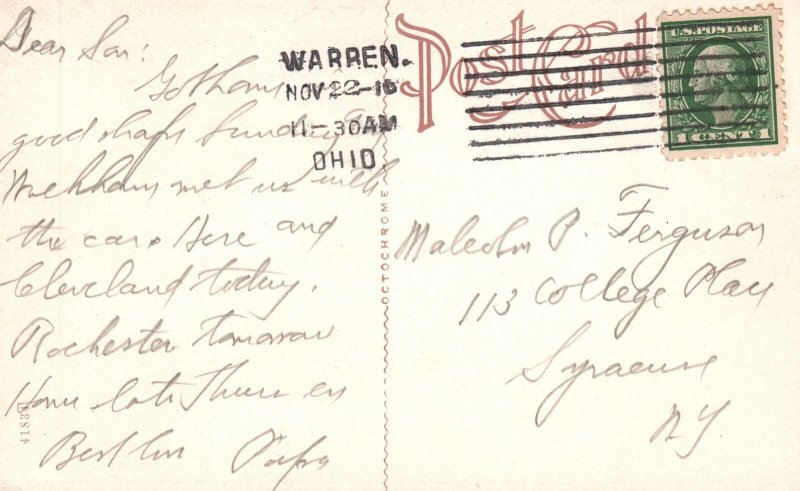 Dear Son:
Got here
good shape Sunday
met us with
the car. Here and
Cleveland today.
Rochester tomorrow
Home late Thurs ev
Best luv Papa
41839
WARREN.
NOV 22-16
11-30AM
OHIO.
Post Card
U.S. POSTAGE
1 CENT 1
OCTOCHROME
Malcolm P. Ferguson
113 College Place
Syracuse
N.Y.